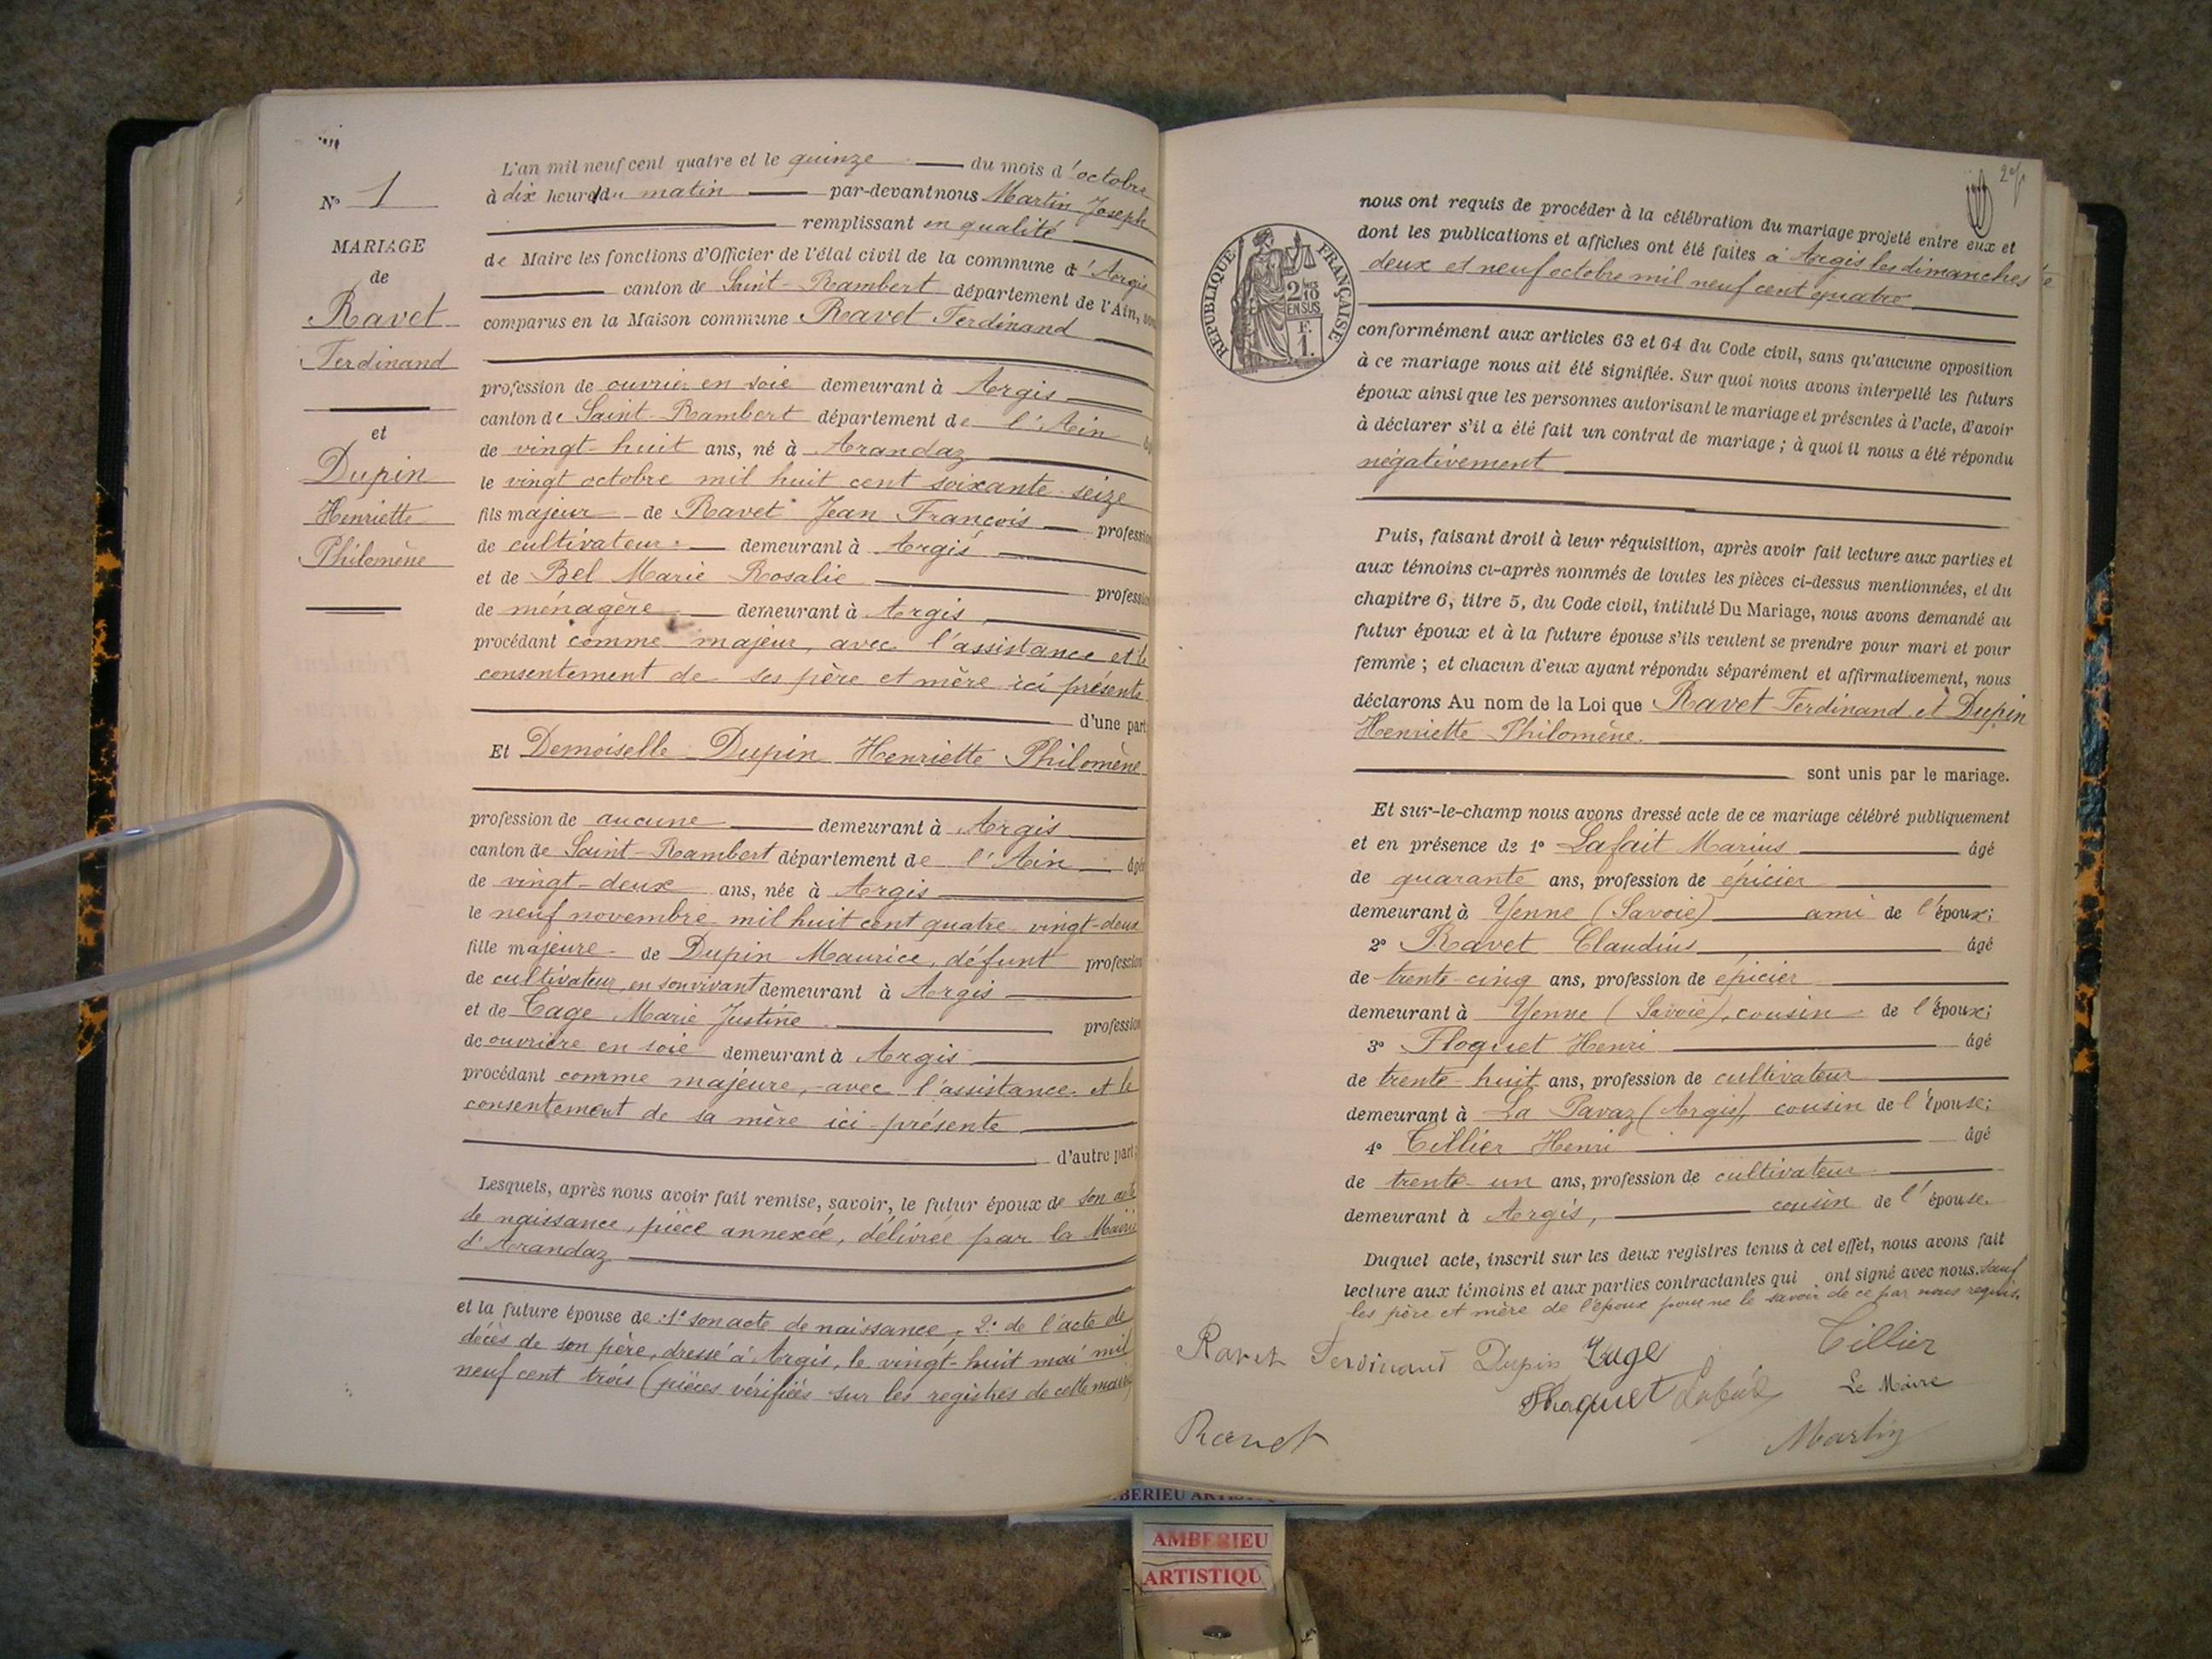 N° 1
MARIAGE
de
Ravet
Ferdinand
et
Dupin
Henriette
Philomène
L'an mil neuf cent quatre et le quinze du mois d'octobre
à dix heure du matin par-devant nous Martin Joseph
remplissant en qualité
de Maire les fonctions d'Officier de l'état civil de la commune d'Argis
canton de Saint-Rambert département de l'Ain,
comparus en la Maison commune Ravet Ferdinand
profession de ouvrier en soie demeurant à Argis
canton de Saint-Rambert département de l'Ain
de vingt-huit ans, né à Arandaz
le vingt octobre mil huit cent soixante-seize
fils majeur de Ravet Jean François profession
de cultivateur demeurant à Argis
et de Bel Marie Rosalie profession
de ménagère demeurant à Argis,
procédant comme majeur, avec l'assistance et le
consentement de ses père et mère ici présents
d'une part
Et Demoiselle Dupin Henriette Philomène
profession de aucune demeurant à Argis
canton de Saint-Rambert département de l'Ain âgée
de vingt-deux ans, née à Argis
le neuf novembre mil huit cent quatre vingt-deux
fille majeure de Dupin Maurice, défunt profession
de cultivateur en son vivant demeurant à Argis
et de Tage Marie Justine profession
de ouvrière en soie demeurant à Argis
procédant comme majeure, avec l'assistance et le
consentement de sa mère ici présente
d'autre part;
Lesquels, après nous avoir fait remise, savoir, le futur époux de son acte
de naissance, pièce annexée, délivrée par la Mairie
d'Arandaz
et la future épouse de: 1° son acte de naissance; 2° de l'acte de
décès de son père, dressé à Argis, le vingt-huit mai mil
neuf cent trois (pièces vérifiées sur les registres de cette mairie)
RÉPUBLIQUE FRANÇAISE
2/10
EN SUS
F.
1.
nous ont requis de procéder à la célébration du mariage projeté entre eux et
dont les publications et affiches ont été faites à Argis les dimanches
deux et neuf octobre mil neuf cent quatre
conformément aux articles 63 et 64 du Code civil, sans qu'aucune opposition
à ce mariage nous ait été signifiée. Sur quoi nous avons interpellé les futurs
époux ainsi que les personnes autorisant le mariage et présentes à l'acte, d'avoir
à déclarer s'il a été fait un contrat de mariage; à quoi il nous a été répondu
négativement
Puis, faisant droit à leur réquisition, après avoir fait lecture aux parties et
aux témoins ci-après nommés de toutes les pièces ci-dessus mentionnées, et du
chapitre 6, titre 5, du Code civil, intitulé Du Mariage, nous avons demandé au
futur époux et à la future épouse s'ils veulent se prendre pour mari et pour
femme; et chacun d'eux ayant répondu séparément et affirmativement, nous
déclarons Au nom de la Loi que Ravet Ferdinand et Dupin
Henriette Philomène.
sont unis par le mariage.
Et sur-le-champ nous avons dressé acte de ce mariage célébré publiquement
et en présence de 1° Lafait Marius âgé
de quarante ans, profession de épicier
demeurant à Yenne (Savoie) ami de l'époux;
2° Ravet Claudius âgé
de trente cinq ans, profession de épicier
demeurant à Yenne (Savoie), cousin de l'époux;
3° Floquet Henri âgé
de trente-huit ans, profession de cultivateur
demeurant à La Pavaz (Argis), cousin de l'épouse;
4° Tillier Henri âgé
de trente-un ans, profession de cultivateur
demeurant à Argis, cousin de l'épouse.
Duquel acte, inscrit sur les deux registres tenus à cet effet, nous avons fait
lecture aux témoins et aux parties contractantes qui ont signé avec nous. sauf
les père et mère de l'époux pour ne le savoir de ce par nous requis.
Ravet Ferdinand Dupin Tage Tillier
Floquet Lafait Le Maire
Ravet Martin
AMBERIEU
ARTISTIQU